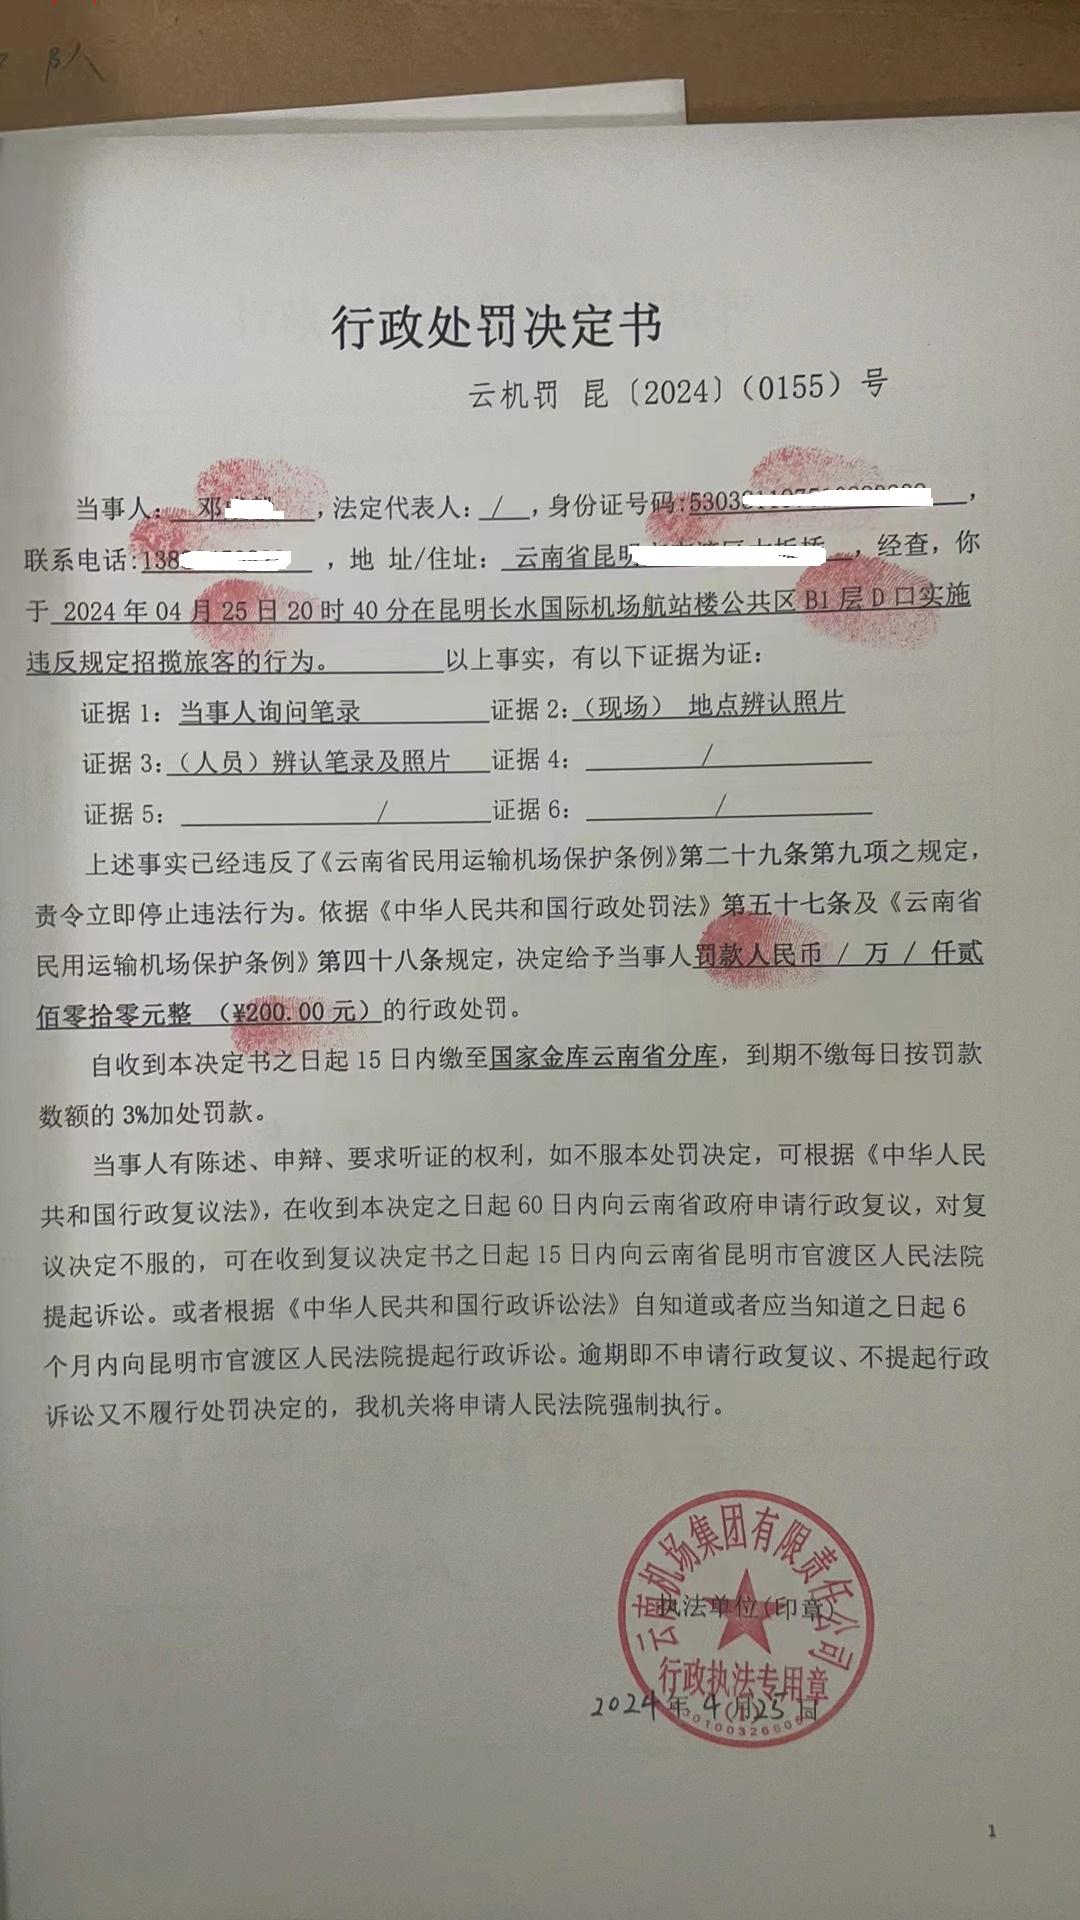 行政处罚决定书
云机罚 昆〔2024〕(0155)号
当事人:邓,法定代表人:/,身份证号码:5303,
联系电话:138,地 址/住址:云南省昆明,经查,你
于 2024年04月25日20时40分在昆明长水国际机场航站楼公共区B1层D口实施
违反规定招揽旅客的行为。以上事实,有以下证据为证:
证据1:当事人询问笔录 证据2:(现场) 地点辨认照片
证据3:(人员)辨认笔录及照片 证据4:/
证据5:/ 证据6:/
上述事实已经违反了《云南省民用运输机场保护条例》第二十九条第九项之规定,
责令立即停止违法行为。依据《中华人民共和国行政处罚法》第五十七条及《云南省
民用运输机场保护条例》第四十八条规定,决定给予当事人罚款人民币 / 万 / 仟贰
佰零拾零元整 (¥200.00元)的行政处罚。
自收到本决定书之日起15日内缴至国家金库云南省分库,到期不缴每日按罚款
数额的3%加处罚款。
当事人有陈述、申辩、要求听证的权利,如不服本处罚决定,可根据《中华人民
共和国行政复议法》,在收到本决定之日起60日内向云南省政府申请行政复议,对复
议决定不服的,可在收到复议决定书之日起15日内向云南省昆明市官渡区人民法院
提起诉讼。或者根据《中华人民共和国行政诉讼法》自知道或者应当知道之日起6
个月内向昆明市官渡区人民法院提起行政诉讼。逾期即不申请行政复议、不提起行政
诉讼又不履行处罚决定的,我机关将申请人民法院强制执行。
云南机场集团有限责任公司
执法单位(印章)
行政执法专用章
2024年4月25日
1